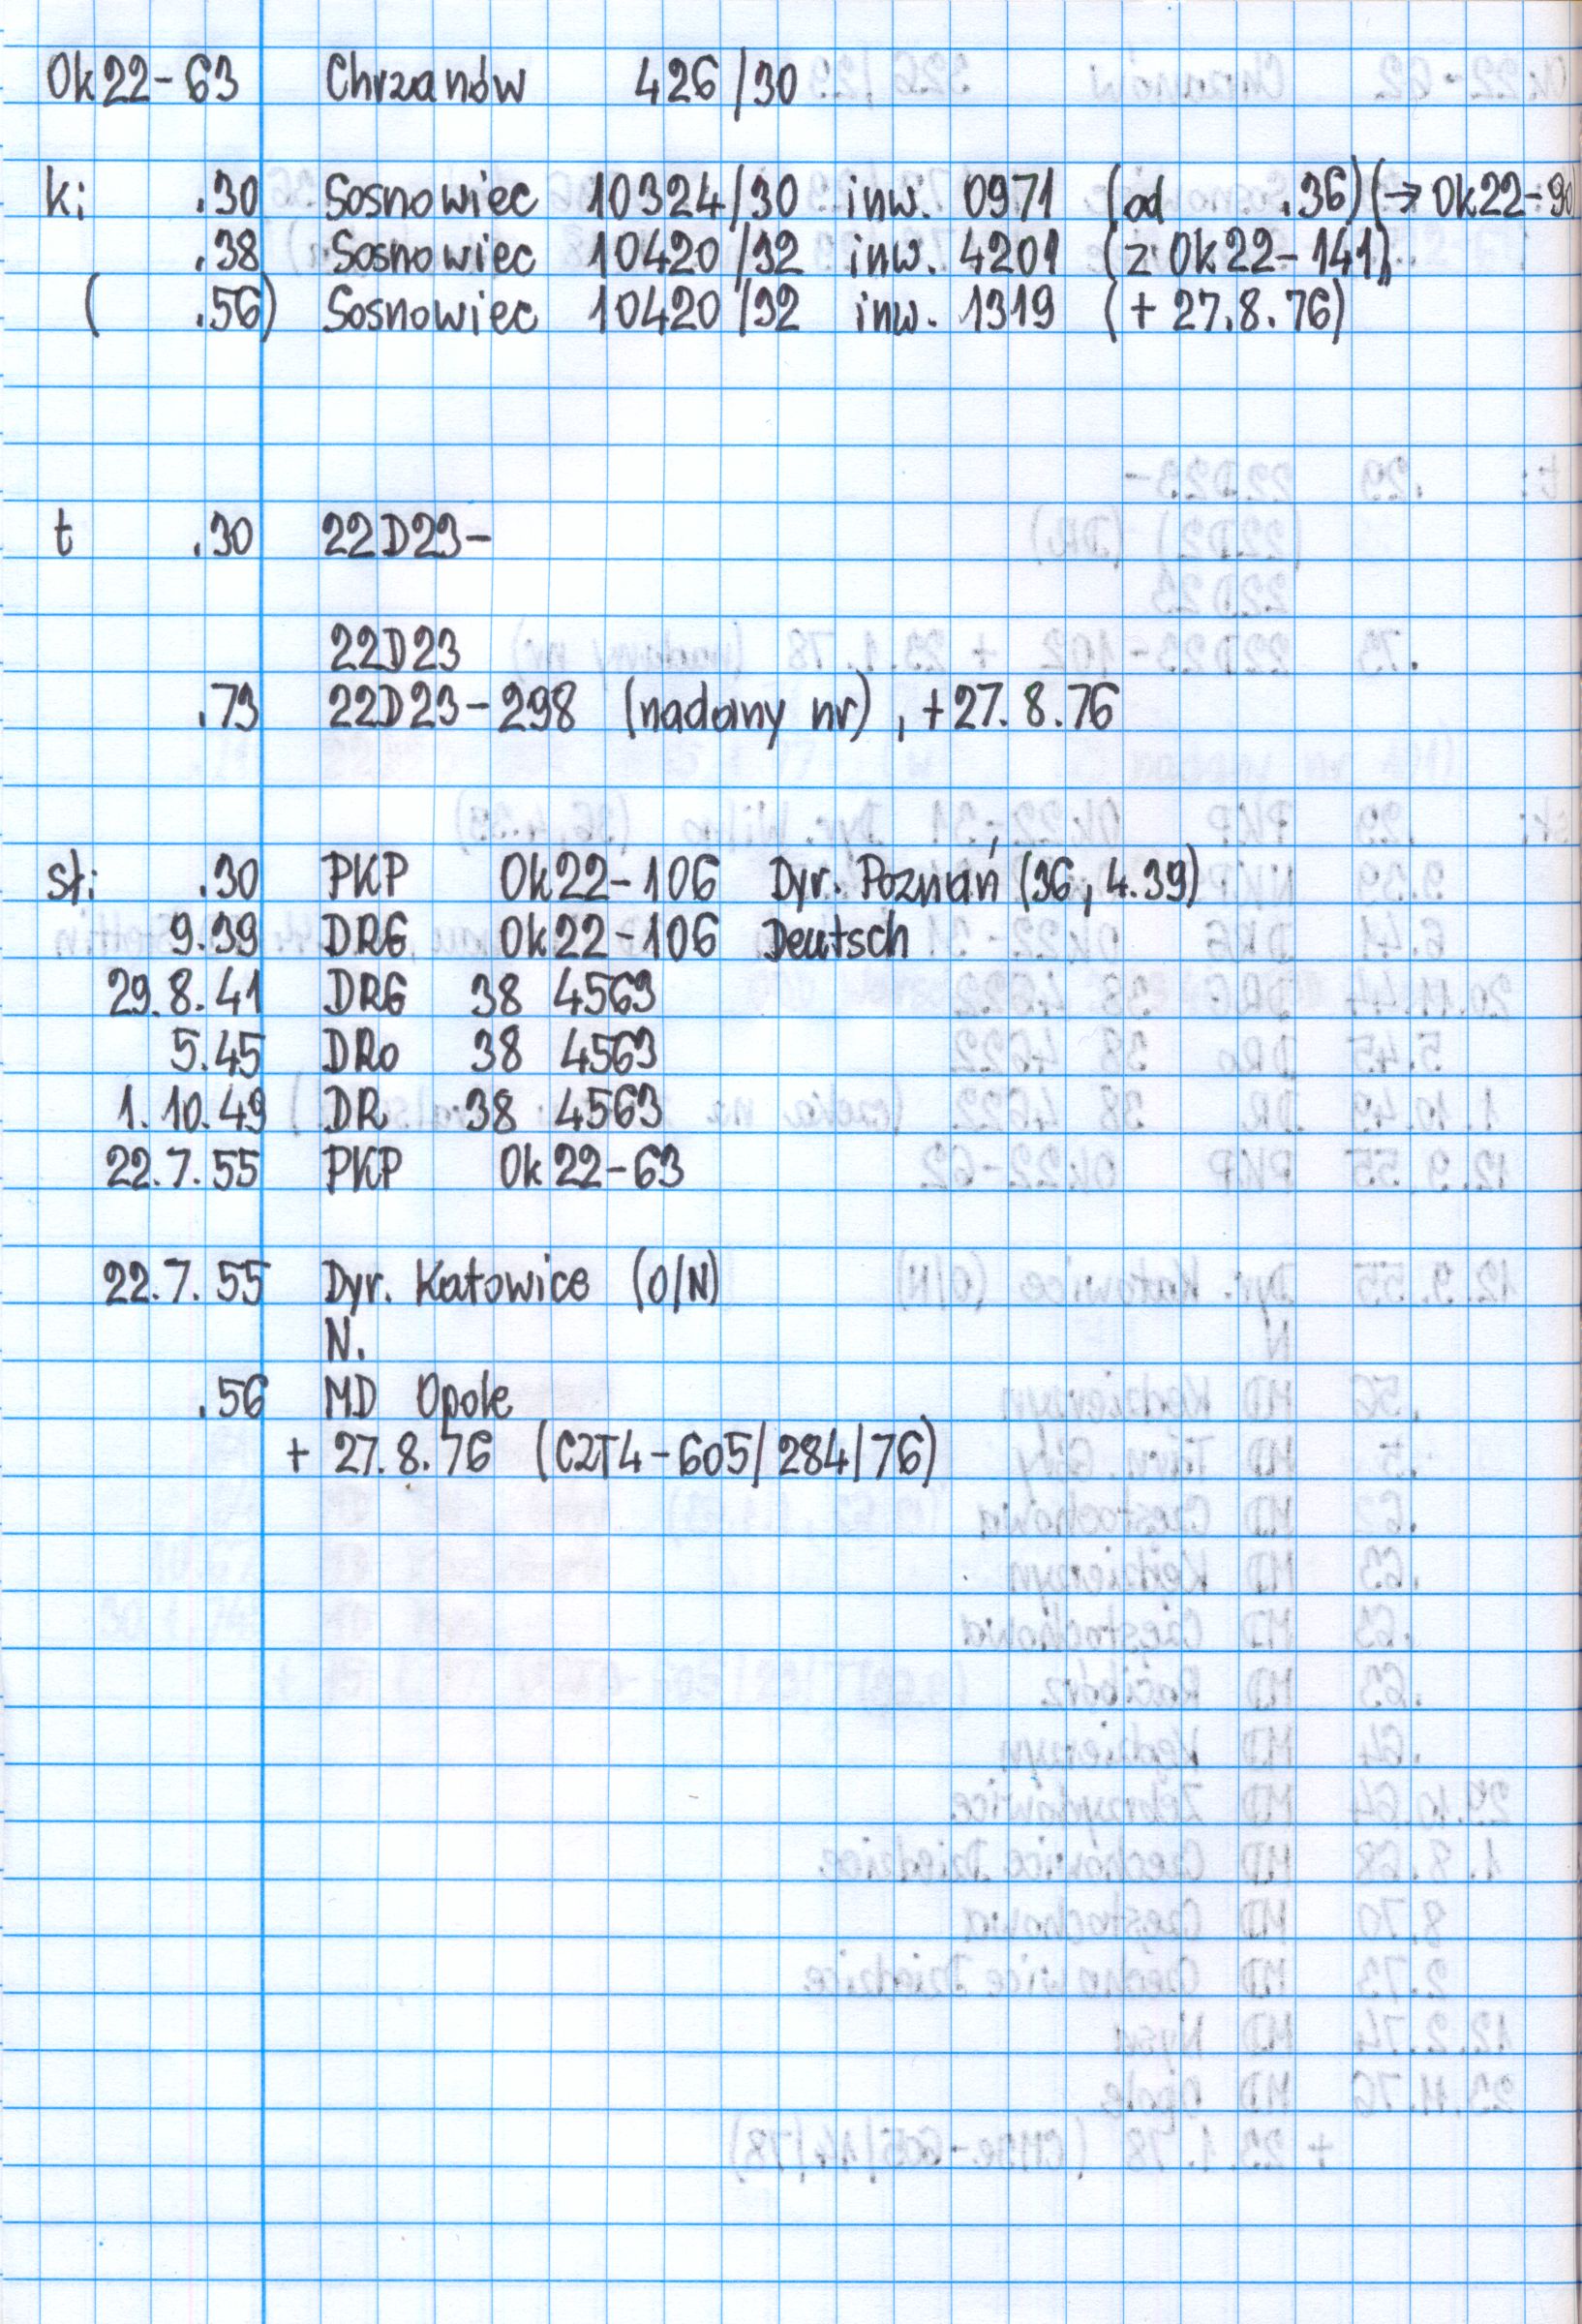 Ok22-63 Chrzanów 426/30
ki .30 Sosnowiec 10324/30 inw. 0971 (od .36) (→ Ok22-90
.38 Sosnowiec 10420/32 inw. 4201 (z Ok22-141)
( .56) Sosnowiec 10420/32 inw. 1319 (+ 27.8.76)
t .30 22D23-
22D23
.73 22D23-298 (nadany nr), +27.8.76
st: .30 PKP Ok22-106 Dyr. Poznań (36, 4.39)
9.39 DRG Ok22-106 Deutsch
29.8.41 DRG 38 4563
5.45 DRo 38 4563
1.10.49 DR 38 4563
22.7.55 PKP Ok22-63
22.7.55 Dyr. Katowice (O/N)
N.
.56 MD Opole
+ 27.8.76 (CZT4-605/284/76)